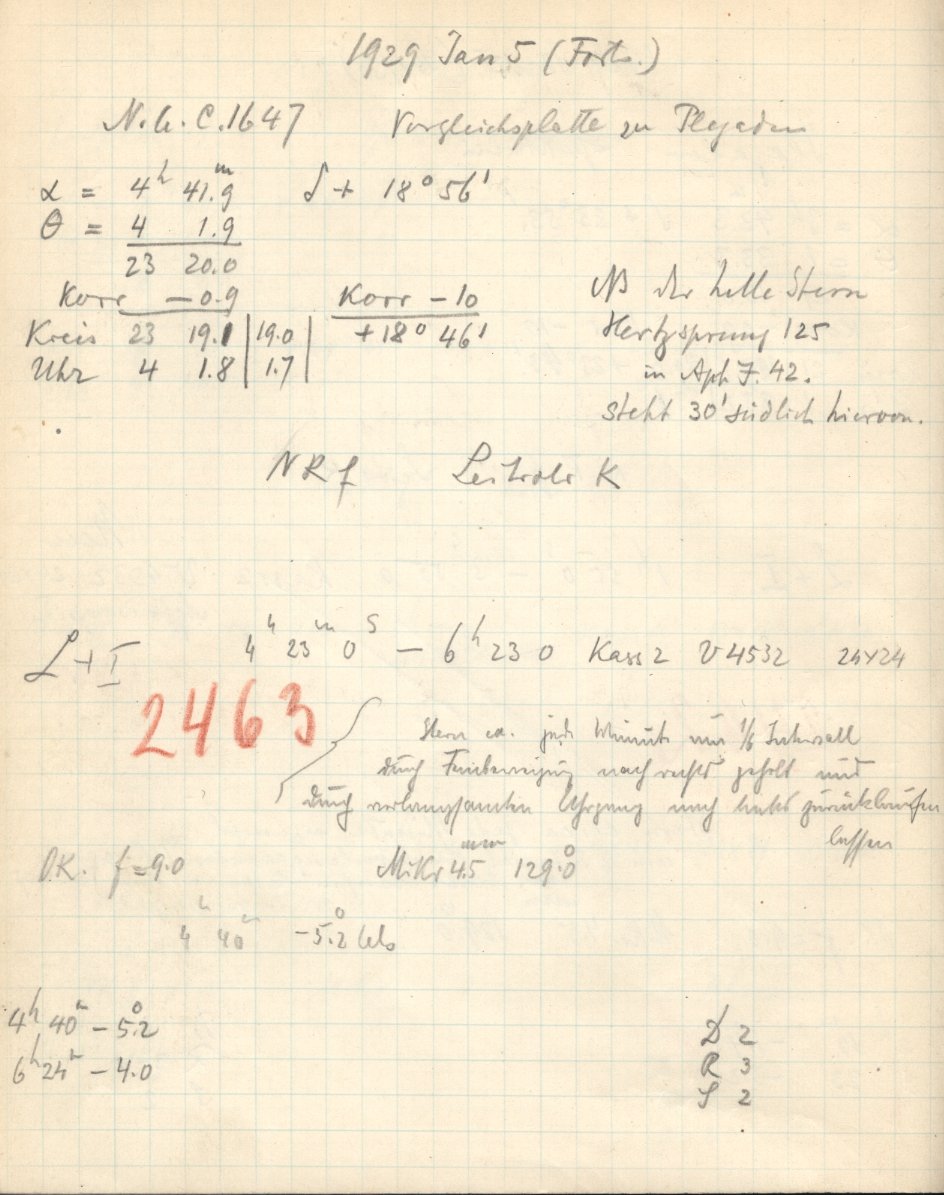 1929 Jan 5 (Forts.)
N.G.C. 1647 Vergleichsplatte zu Plejaden
α = 4h 41.9m δ + 18° 56'
θ = 4 1.9
23 20.0
Korr - 0.9 Korr - 10
Kreis 23 19.1 | 19.0 | + 18° 46'
Uhr 4 1.8 | 1.7 |
NB der helle Stern
Hertzsprung 125
in Aph J. 42.
steht 30' südlich hiervon.
NRf Leitrohr K
L + I 4h 23m 0s — 6h 23 0 Kass 2 V 4532 24x24
2463
Stern ca. jede Minute um 1/6 Intervall
durch Feinbewegung nach rechts geholt und
durch verlangsamten Uhrgang nach links zurücklaufen
lassen
OK. f = 9.0 Mikr 4.5 mm 129.0°
4h 40m -5.2° Cels
4h 40m - 5.2°
6h 24m - 4.0
D 2
R 3
S 2